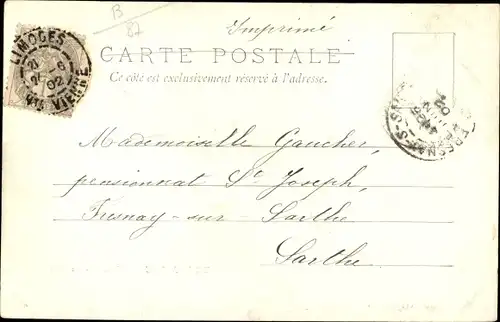 B
87
Imprimé
CARTE POSTALE
Ce côté est exclusivement réservé à l'adresse.
LIMOGES
Hte VIENNE
02
FRESNAY-S-S
02
Mademoiselle Gaucher,
pensionnat St Joseph,
Fresnay-sur-Sarthe
Sarthe